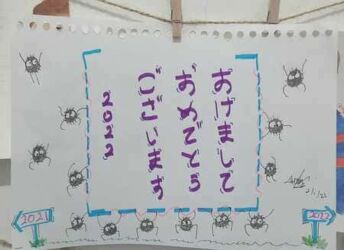 おげまして
おめでとう
ございます
2022
2021
2022